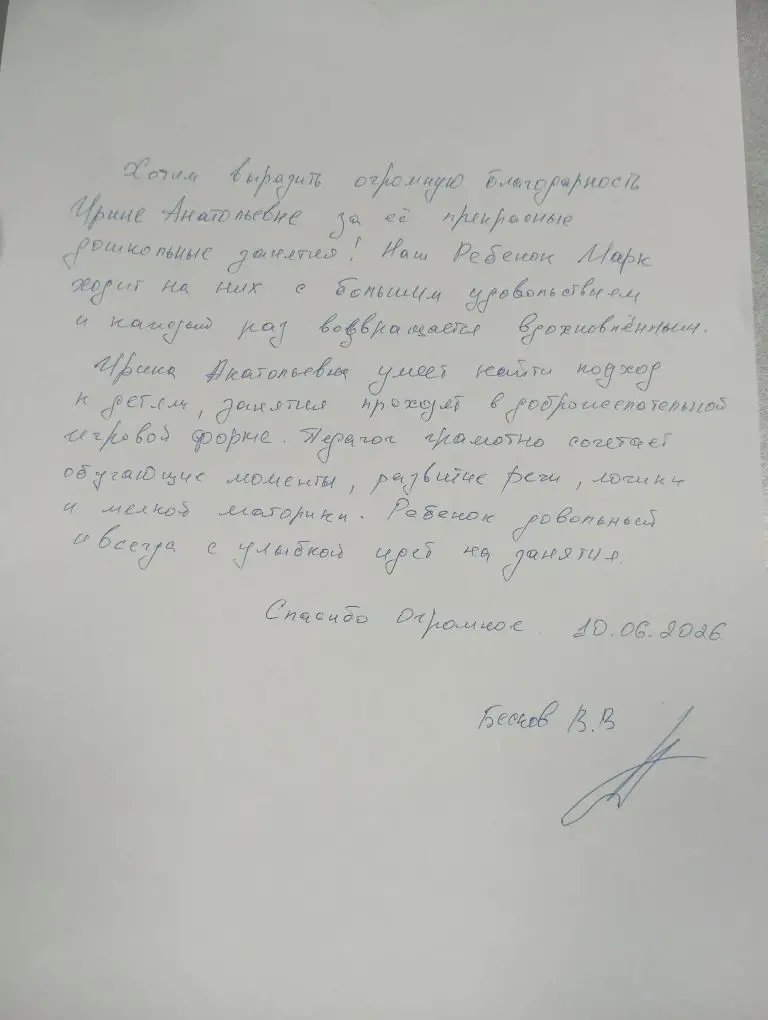 Хотим выразить огромную благодарность
Ирине Анатольевне за её прекрасные
дошкольные занятия! Наш Ребенок Марк
ходит на них с большим удовольствием
и каждый раз возвращается вдохновлённым.
Ирина Анатольевна умеет найти подход
к детям, занятия проходят в доброжелательной
игровой форме. Педагог грамотно сочетает
обучающие моменты, развитие речи, логики
и мелкой моторики. Ребенок довольный
и всегда с улыбкой идет на занятия.
Спасибо Огромное. 10.06.2026
Бесков В.В